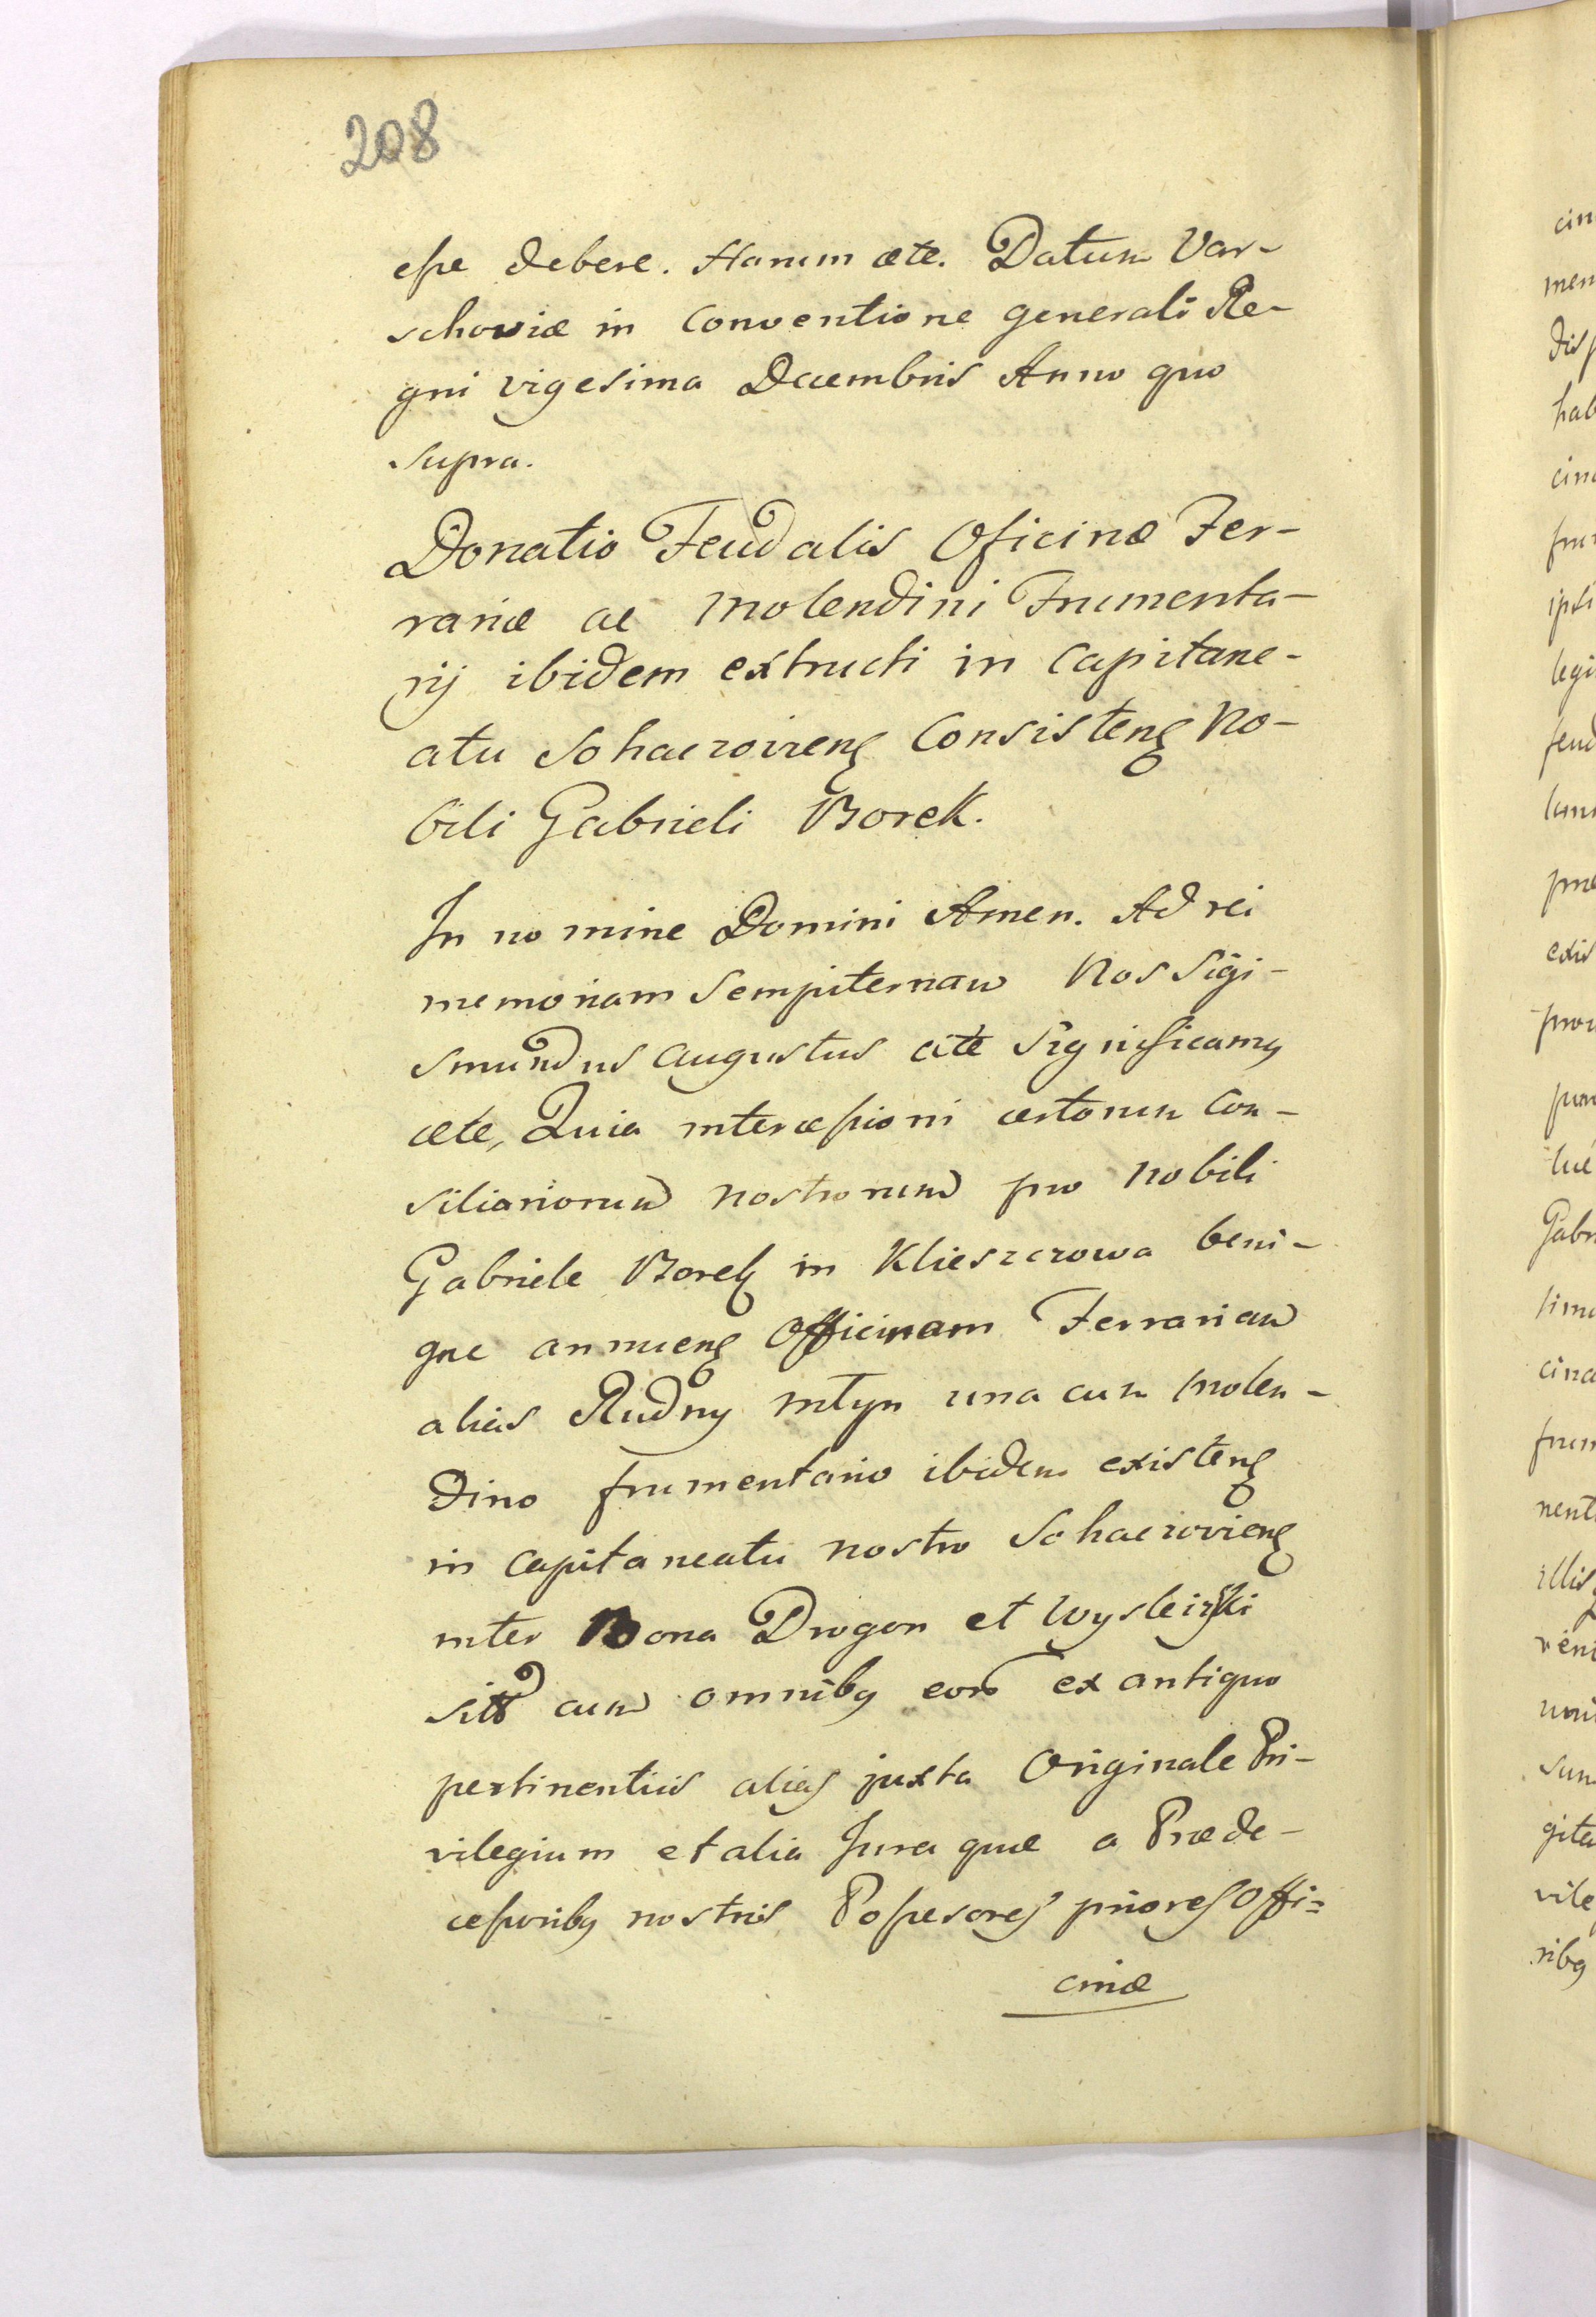 208
esse debere. Harum ćte. Datum Var-
schowiæ in Conventione generali Re-
gni vigesima Decembris Anno quo
supra.
Donatio Feudalis Oficinæ Fer-
rariæ ac Molendini Frumenta-
rij ibidem extructi in Capitane-
atu Sohaczoviens Consistens No-
bili Gabrieli Borek.
In nomine Domini Amen. Ad rei
memoriam Sempiternam Nos Sigi-
smundus Augustus ćte Significamus
ćete, Quia intercessioni certorum Con-
siliariorum nostrorum pro Nobili
Gabriele Borek in Klieszczowa beni-
gne annuens Officinam Ferrariam
alias Rudny młyn una cum molen-
dino frumentario ibidem existens
in Capitaneatu nostro Sohaczoviens
inter Bona Drogon et
sitt cum omnibus eorum ex antiquo
pertinentiis alias juxta Originale Pri-
vilegium et alia Jura quæ a Præde-
cessoribus nostris Possesores priores Offi=
cinæ